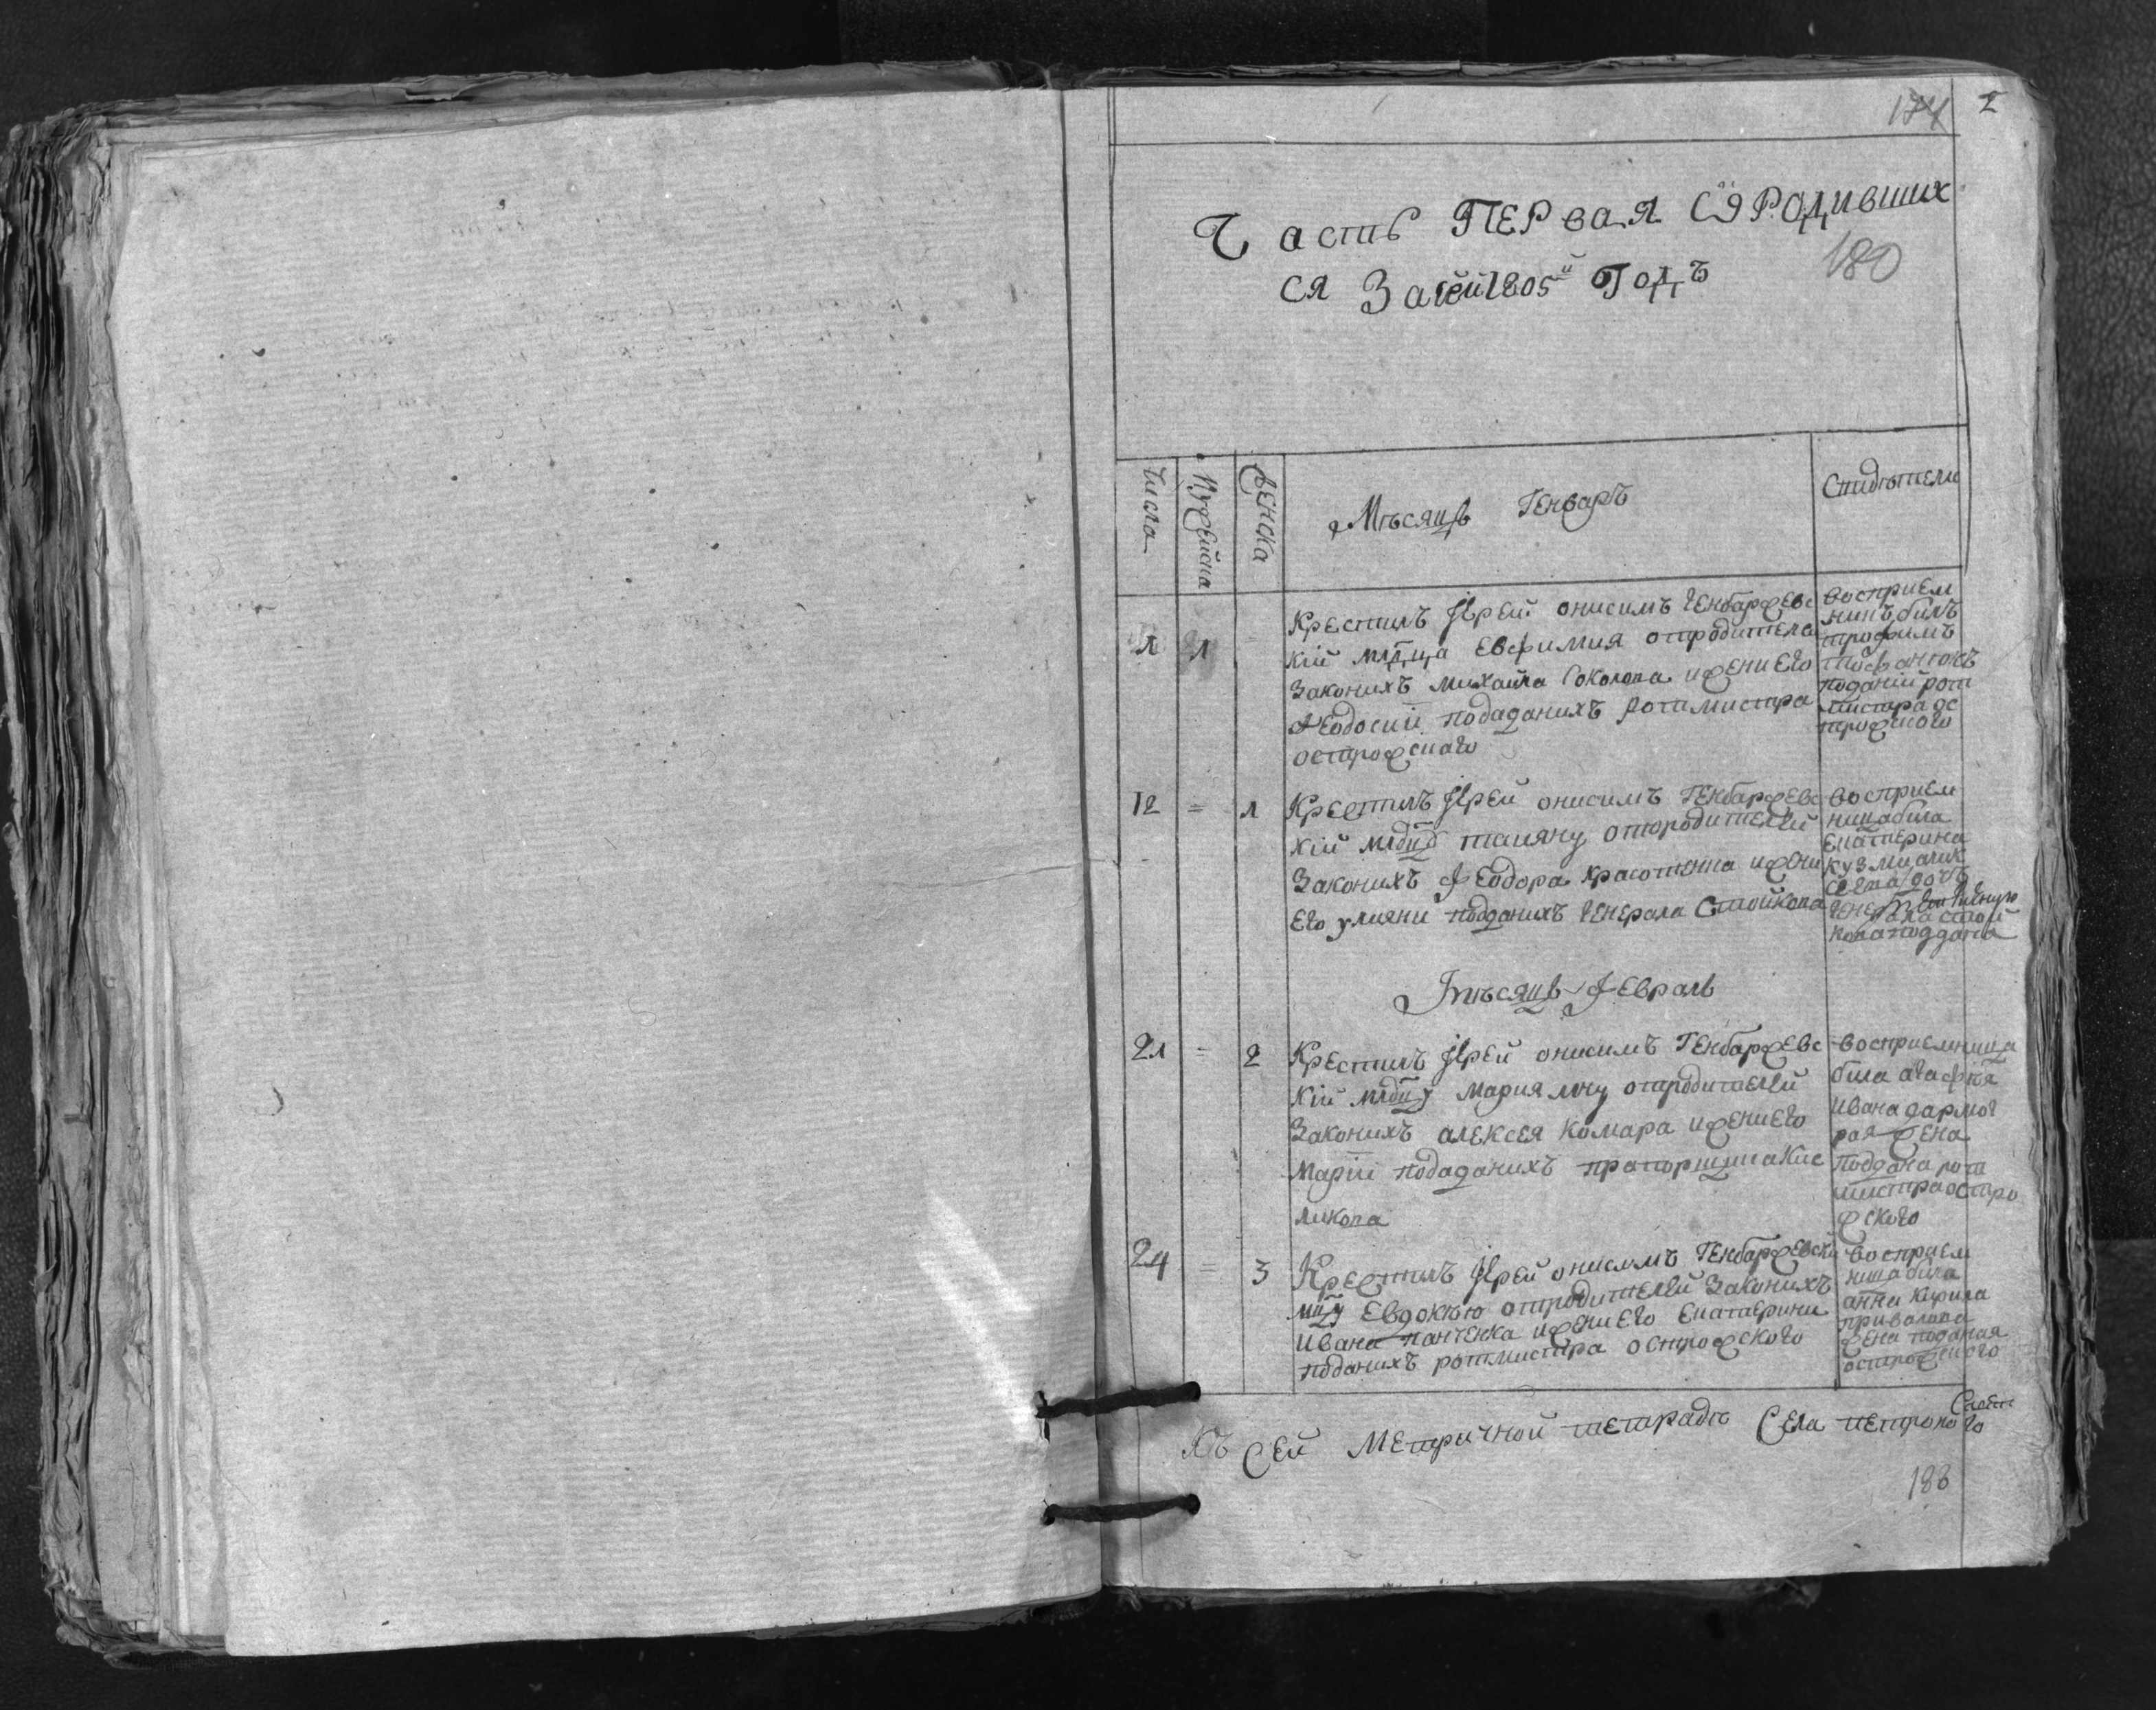 174 2
Часть Первая Ѿ Родивших
180
ся За сей 1805й Годъ
Числа
Мужеска
Женска
Мѣсяцъ Генваръ
Свидѣтели
1 1
Крестилъ Іерей онисимъ Генбаржевс
кій млдца Евфимия отродитела
Законихъ михайла Соколова иженіего
Феодосии подаданихъ ротмистра
острожскаго
восприем
никъ билъ
трофимъ
поданій рот
мистра ос
трожского
12 = 1
Крестилъ Іерей онисимъ Генбаржевс
кій млдцу татяну отородителей
Законихъ Феодора красотенка ижени
Его уляни подданихъ Генерала Стойкова
восприем
ницабила
Екатерина
Генерала Стой
кова поддана
Мѣсяцъ Февраль
21 = 2
Крестилъ Іерей онисимъ Генбаржевс
Кій млдцу Мариямну отродителей
Законихъ алексея комара ижениего
Маріи подаданихъ прапорщика Кис
ликова
восприемница
била агафия
Ивана дармог
рая жена
поддана рот
мистра остро
жского
24 = 3
Крестилъ Іерей онисимъ Генбаржевски
мцу Евдокѣю отродителей Законихъ
Ивана панченка ижениего Екатерини
поданихъ ротмистра острожского
восприем
ница била
анна Кирила
привалова
жена поданая
острожского
Къ Сей Метричной тетради Села петрово
188